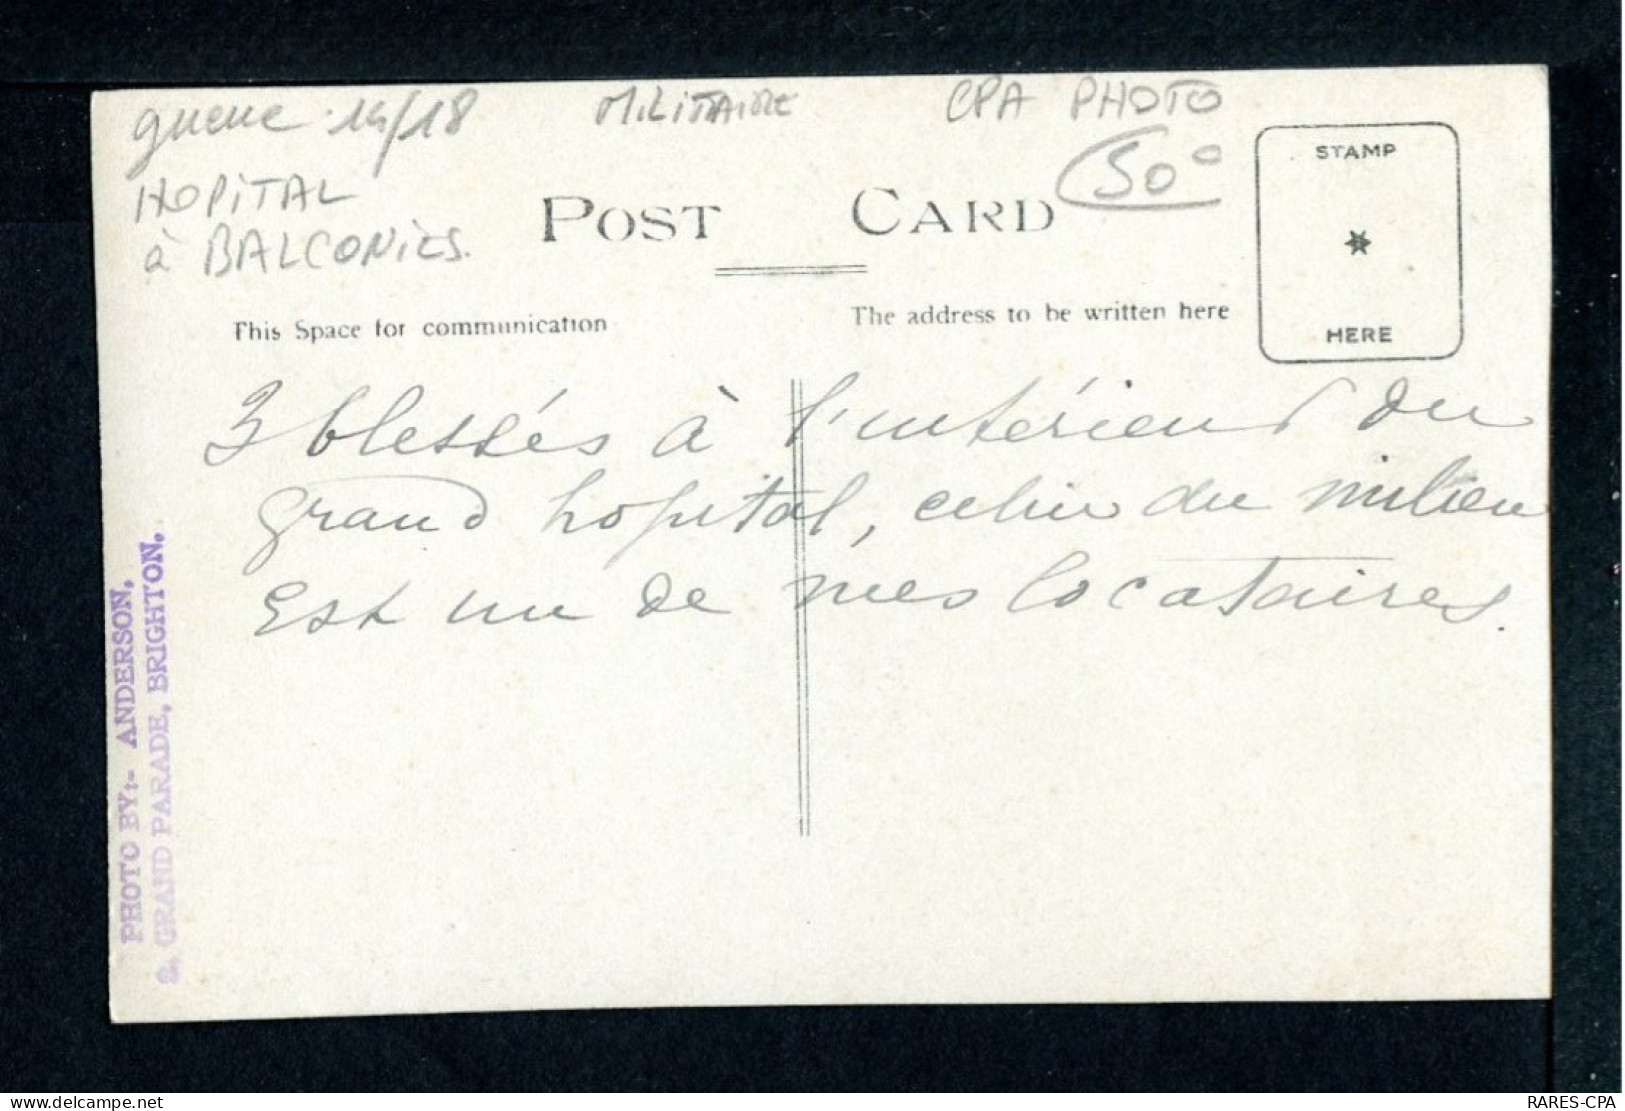 guerre 14/18
MILITAIRE
CPA PHOTO
50°
HOPITAL
à BALCONIES.
POST CARD
STAMP
HERE
This Space for communication
The address to be written here
3 blessés à l'intérieur du
grand hopital, celui du milieu
Est un de mes locataires.
PHOTO BY:- ANDERSON,
2, GRAND PARADE, BRIGHTON.
RARES-CPA